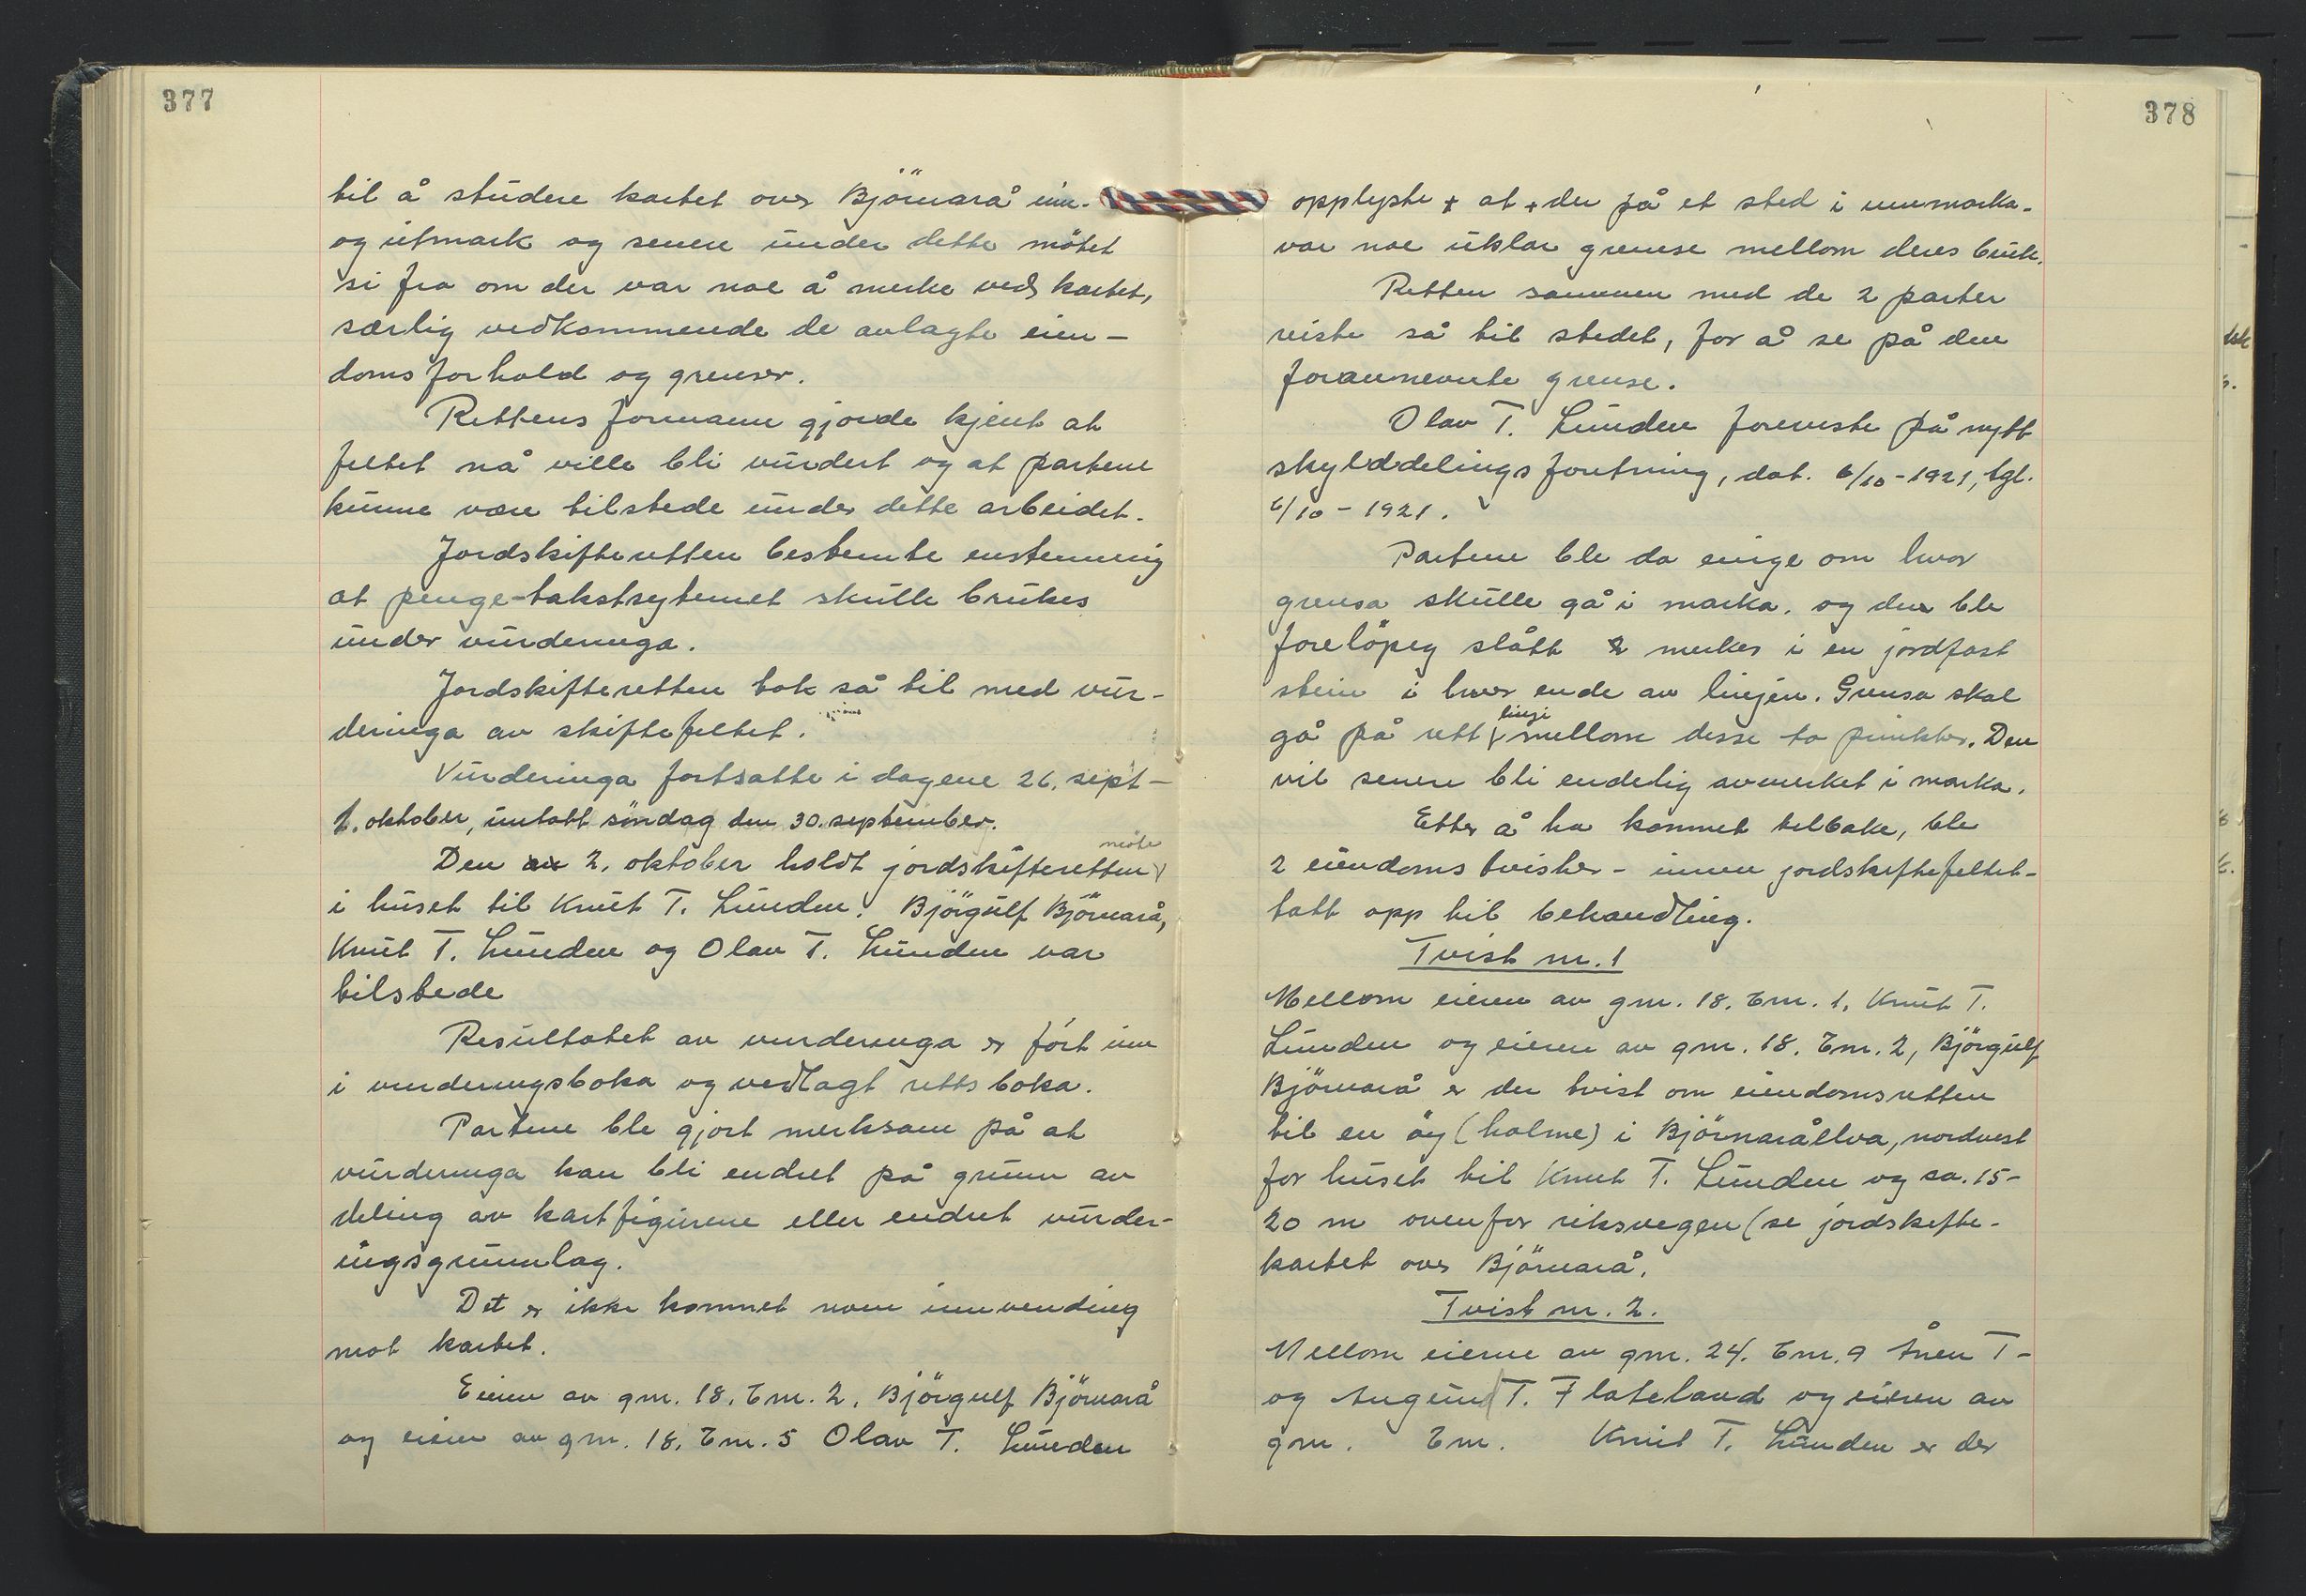 377
til å studere kartet over Björnarå inn-
og utmark og senere under dette mötet
si fra om der var noe å merke ved kartet,
særlig vedkommende de avlagte eien-
domsforhold og grenser.
Rettens formann gjorde kjent at
feltet nå ville bli vurdert og at partene
kunne være tilstede under dette arbeidet.
Jordskifteretten bestemte enstemmig
at penge-takstsystemet skulle brukes
under vurderinga.
Jordskifteretten tok så til med vur-
deringa av skiftefeltet.
Vurderinga fortsatte i dagene 26. sept-
1. oktober, untatt söndag den 30. september.
Den 2. oktober holdt jordskifteretten møte
i huset til Knut T. Lunden. Björgulf Björnarå,
Knut T. Lunden og Olav T. Lunden var
tilstede
Resultatet av vurderinga er fört inn
i vurderingsboka og vedlagt rettsboka.
Partene ble gjort merksam på at
vurderinga kan bli endret på grunn av
deling av kartfigurene eller endret vurder-
ingsgrunnlag.
Det er ikke kommet noen innvending
mot kartet.
Eieren av gnr. 18. bnr. 2. Björgulf Björnarå
og eieren av gnr. 18. bnr. 5 Olav T. Lunden
378
opplyste at der på et sted i innmarka-
var noe uklar grense mellom deres bruk.
Retten sammen med de 2 parter
reiste så til stedet, for å se på den
forannevnte grense.
Olav T. Lunden foreviste på nytt
skylddelingsforretning, dat. 6/10-1921, tgl.
6/10-1921.
Partene ble da enige om hvor
grensa skulle gå i marka. og der ble
forelöpig slått merker i en jordfast
stein i hver ende av linjen. Grensa skal
gå på rett linje mellom desse to punkter. Den
vil senere bli endelig avmerket i marka.
Etter å ha kommet tilbake, ble
2 eiendomstvister - innen jordskiftefeltet-
tatt opp til behandling.
Tvist nr. 1
Mellom eieren av gnr. 18. bnr. 1, Knut T.
Lunden og eieren av gnr. 18. bnr. 2, Björgulf
Björnarå er der tvist om eiendomsretten
til en öy (holme) i Björnaråelva, nordvest
for huset til Knut T. Lunden og ca. 15-
20 m ovenfor riksvegen (se jordskifte-
kartet over Björnarå.
Tvist nr. 2.
Mellom eierne av gnr. 24. bnr. 9 Ånen T-
og Augund T. Flateland og eieren av
gnr. bnr. Knut T. Lunden er der